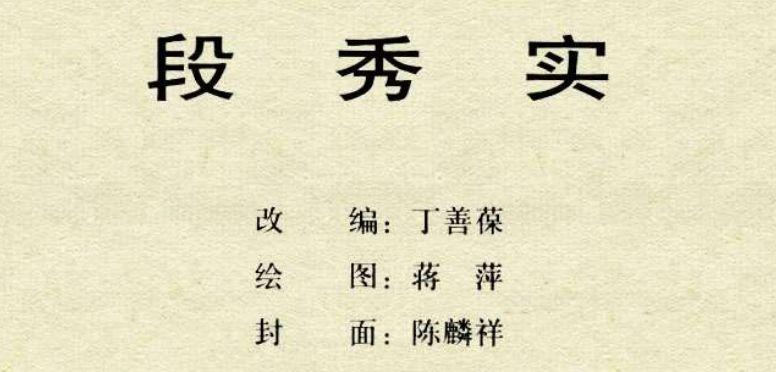 段秀实
改编：丁善葆
绘图：蒋萍
封面：陈麟祥